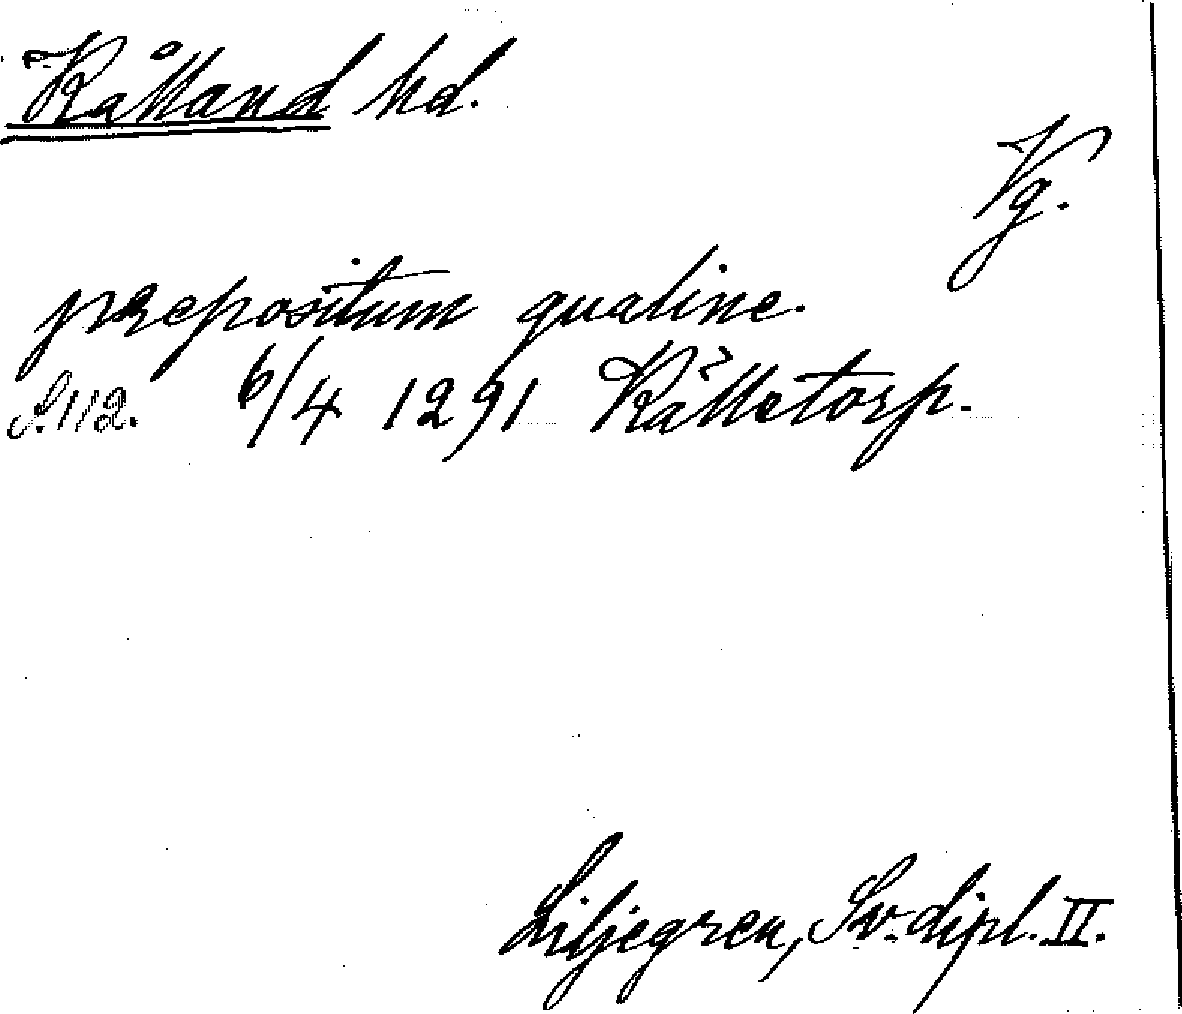 Kålland hd.
Vg.
præpositum qualinc.
S. 112. 6/4 1291 Källetorp.
Liljegren, Sv. dipl. II.